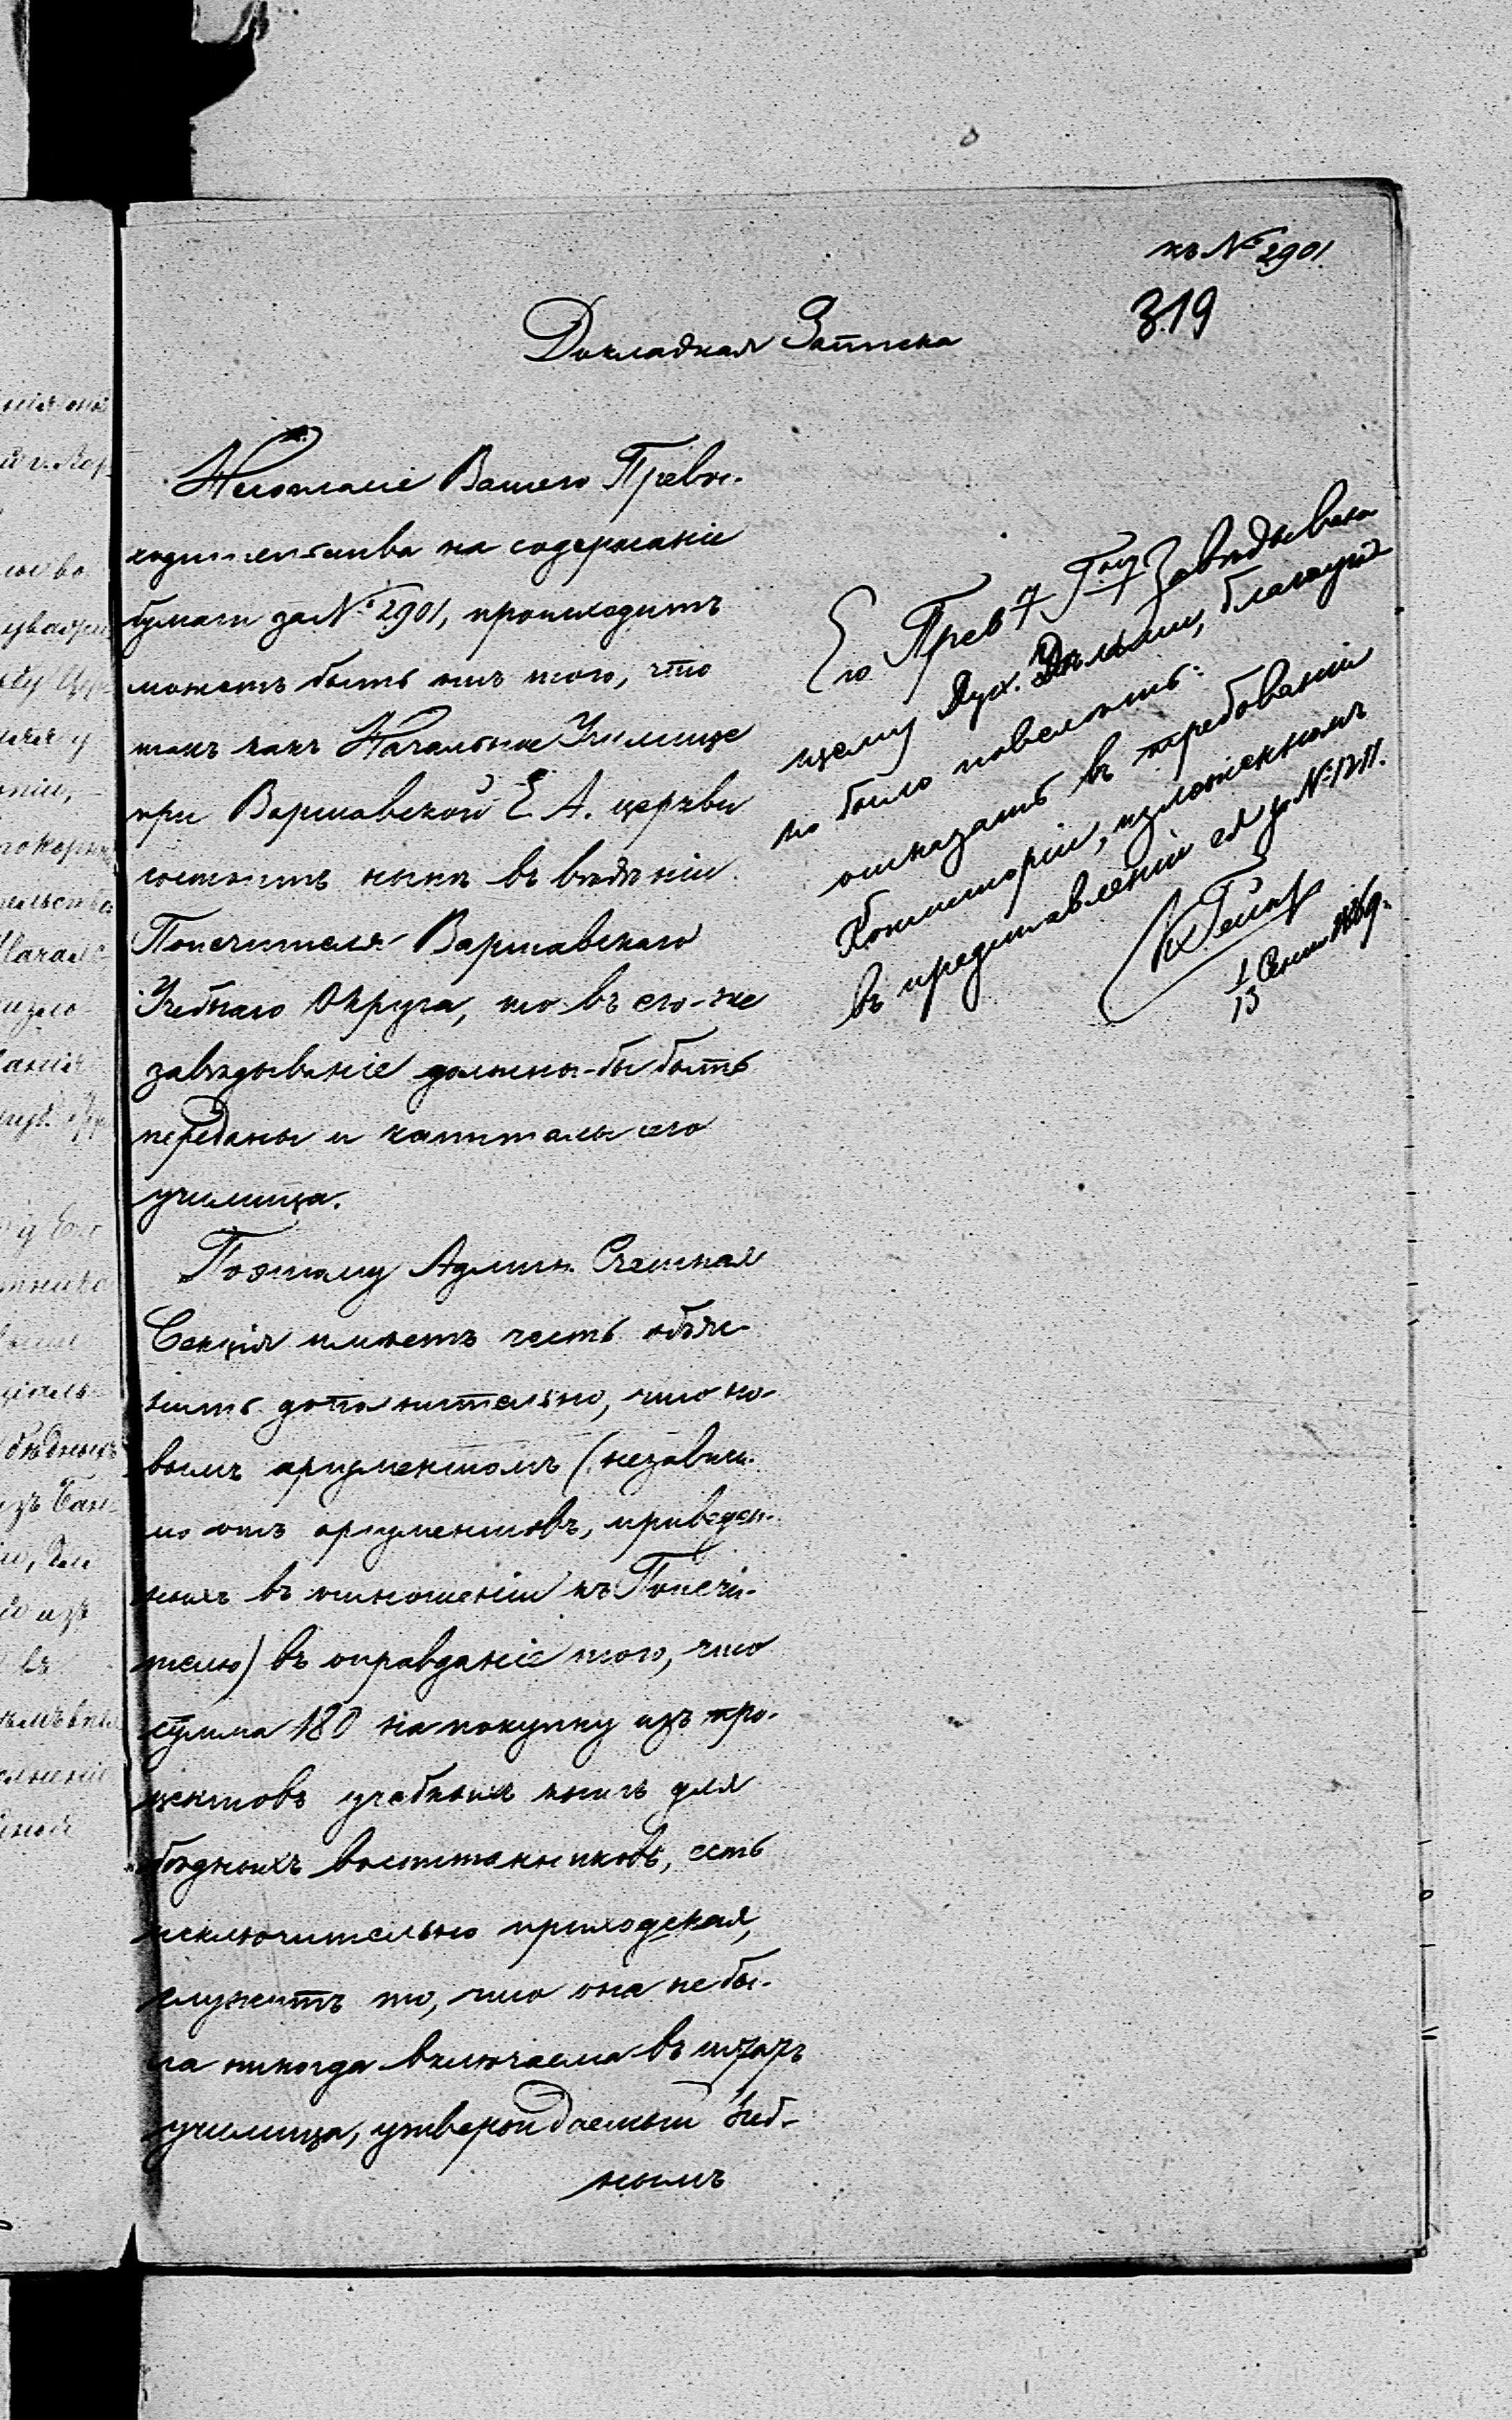 къ № 2901
319
Докладная Записка
Несогласіе Вашего Превос-
ходительства на содержаніе
бумаги за № 2901, происходитъ
можетъ быть отъ того, что
такъ какъ Начальное Училище
при Варшавской Е. А. церкви
состоитъ нынѣ въ вѣдѣніи
Попечителя Варшавскаго
Учебнаго Округа, то въ его-же
завѣдываніе должны-бы быть
переданы и капиталы сего
училища.
Поэтому Админ. Счетная
Секція имѣетъ честь объяс-
нить дополнительно, что но-
вымъ аргументомъ (независи-
мо отъ аргументовъ, приведен-
ныхъ въ отношеніи къ Попечи-
телю) въ оправданіе того, что
сумма 180 на покупку изъ про-
центовъ учебныхъ книгъ для
бѣдныхъ воспитанниковъ, есть
исключительно приходская,
служитъ то, что она не бы-
ла никогда включаема въ штатъ
училища, утверждаемый Учеб-
нымъ
Его Прев Завѣдываю
щему Дух. Дѣлами, благоугод
но было повелѣть:
отказать въ требованіи
Консисторіи, изложенномъ
въ представленіи ея за № 1211.
1/13 Сент 1869.
ія
Вар
во
у
ніи,
покорн
тельства
Начал
изло
ланія
у Ев
бѣдныхъ
изъ Бан-
изъ
въ